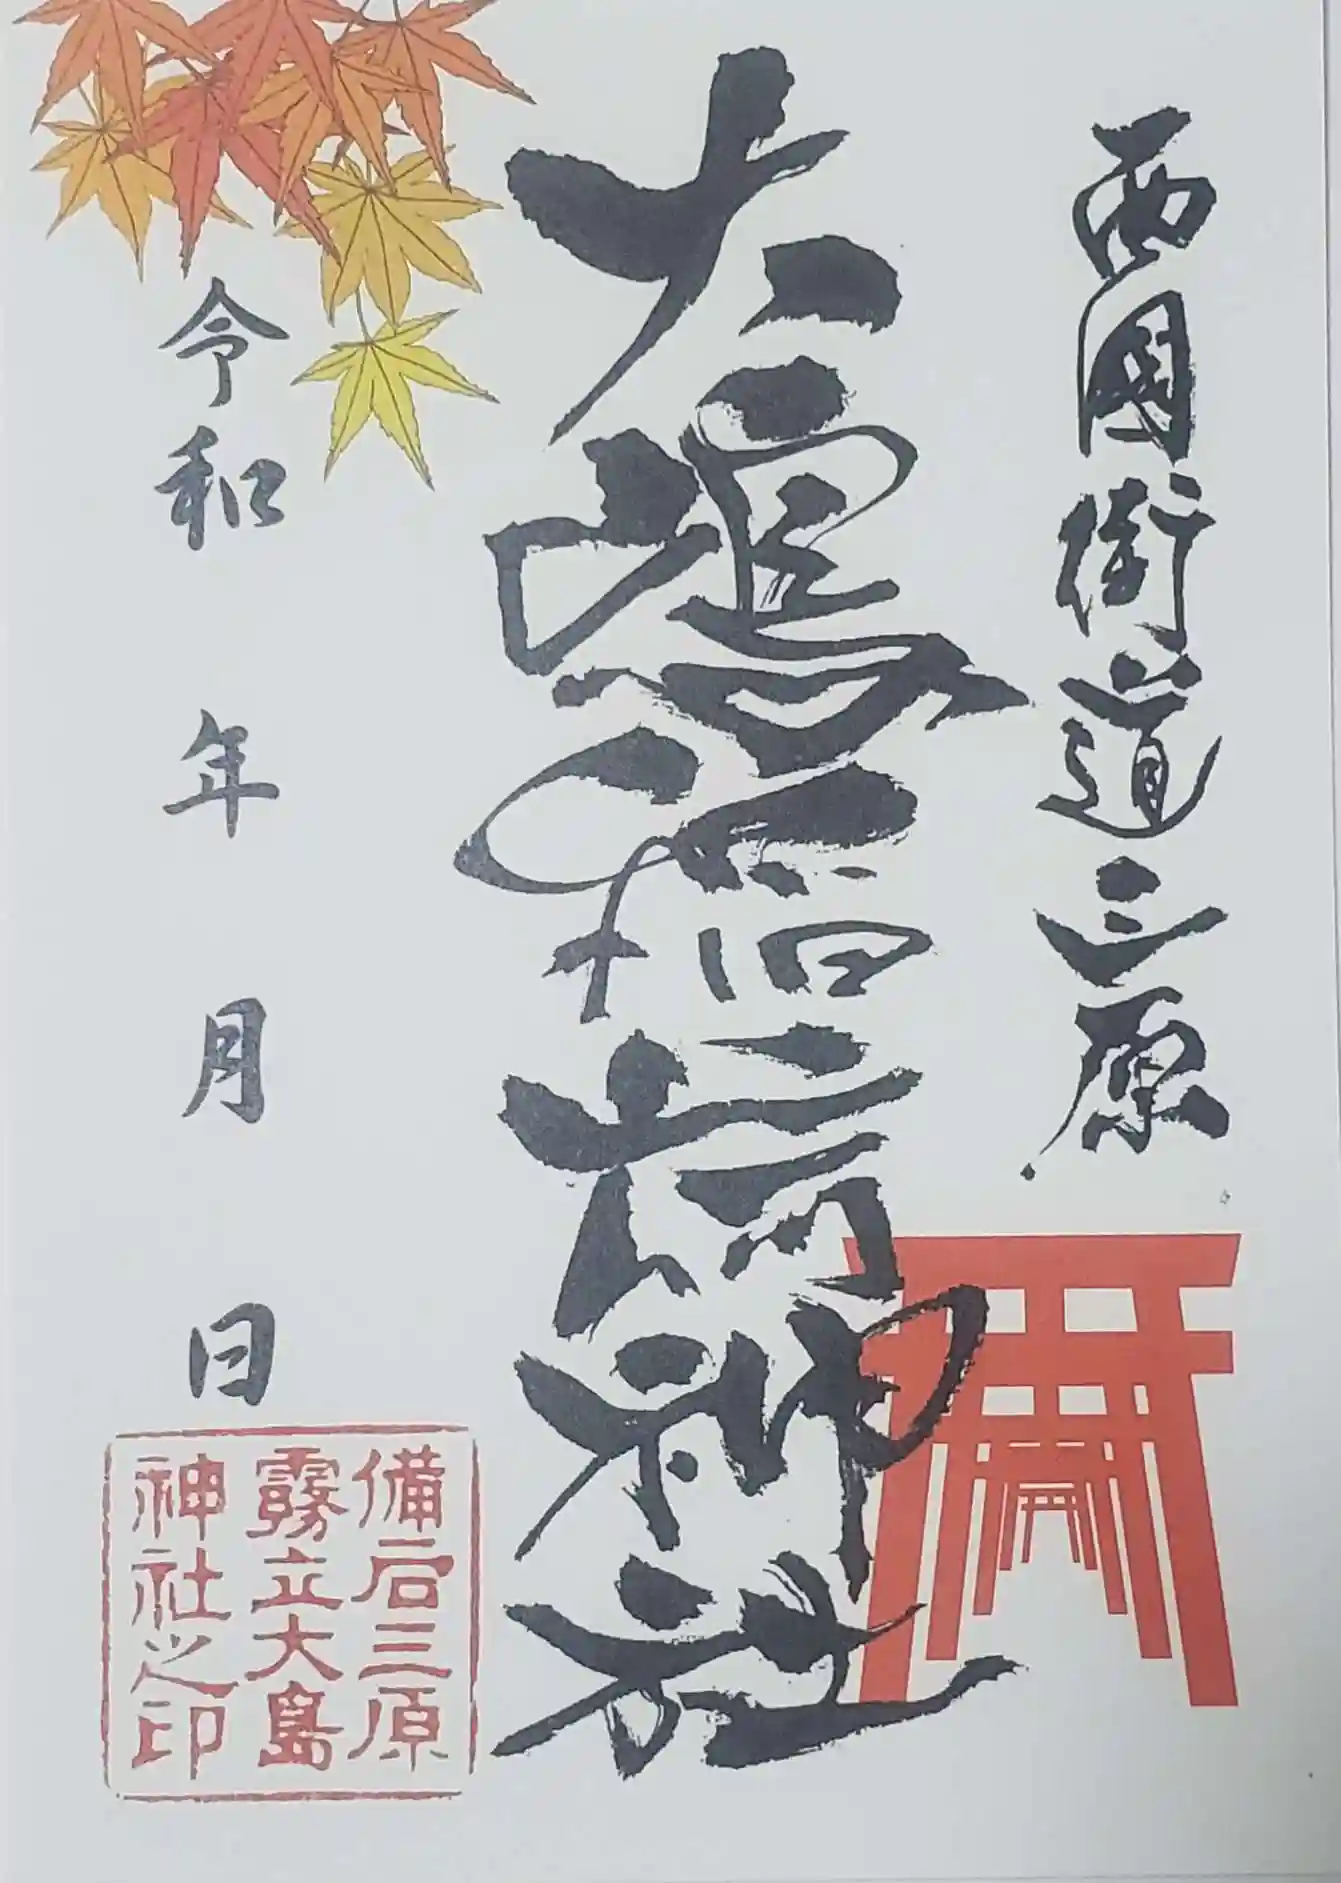 西国街道三原
大嶋稲荷神社
令和 年 月 日
備后三原
霧立大島
神社之印